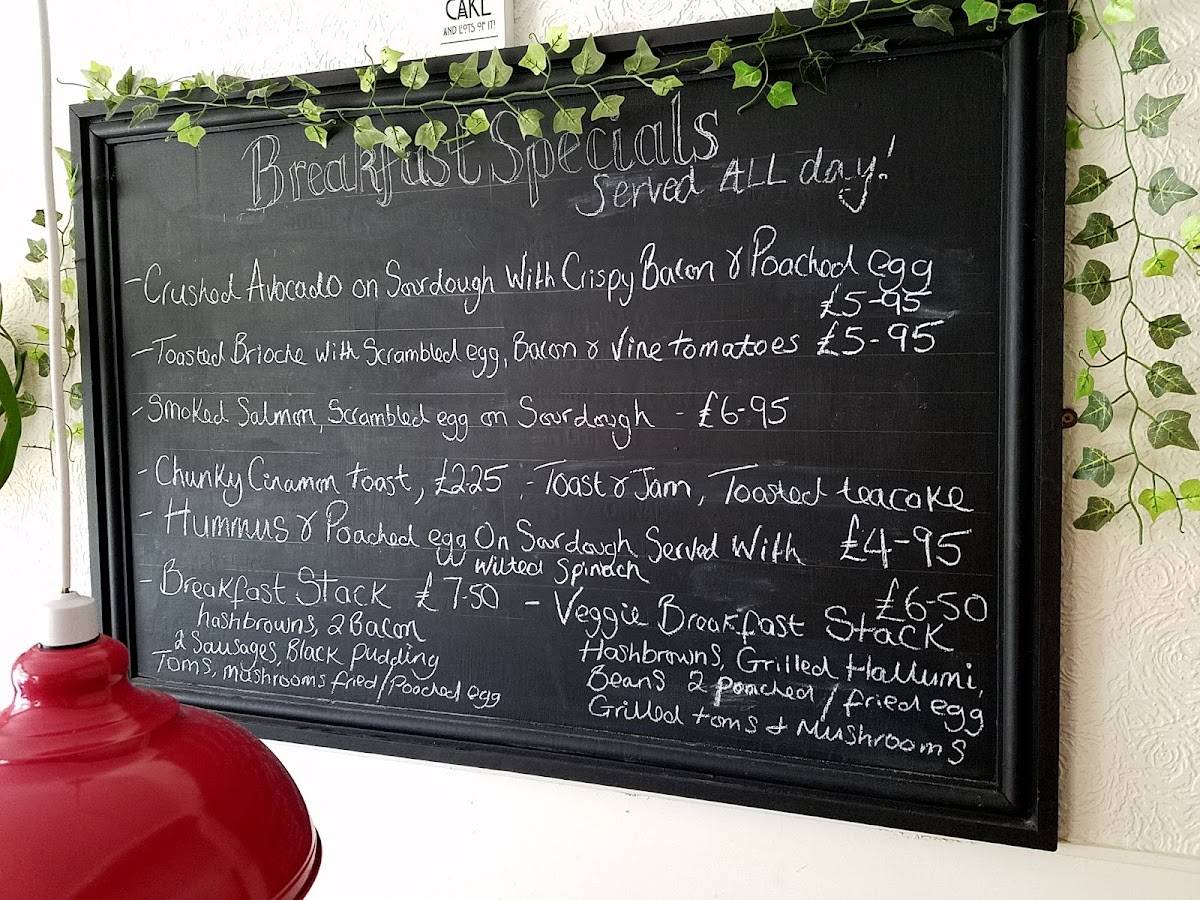 CAKE
AND LOTS OF IT!
Breakfast Specials
Served ALL day!
- Crushed Avocado on Sourdough With Crispy Bacon & Poached egg
£5-95
- Toasted Brioche with Scrambled egg, Bacon & Vine tomatoes £5-95
- Smoked Salmon, Scrambled egg on Sourdough - £6-95
- Chunky Cinamon toast, £2.25 ; - Toast & Jam, Toasted teacake
- Hummus & Poached egg On Sourdough Served With £4-95
Wilted Spinach
- Breakfast Stack £7.50 - Veggie Breakfast Stack £6-50
hashbrowns, 2 Bacon
2 Sausages, Black Pudding
Toms, mushrooms fried/Poached egg
Hashbrowns, Grilled Hallumi,
Beans 2 poached / fried egg
Grilled toms & Mushrooms